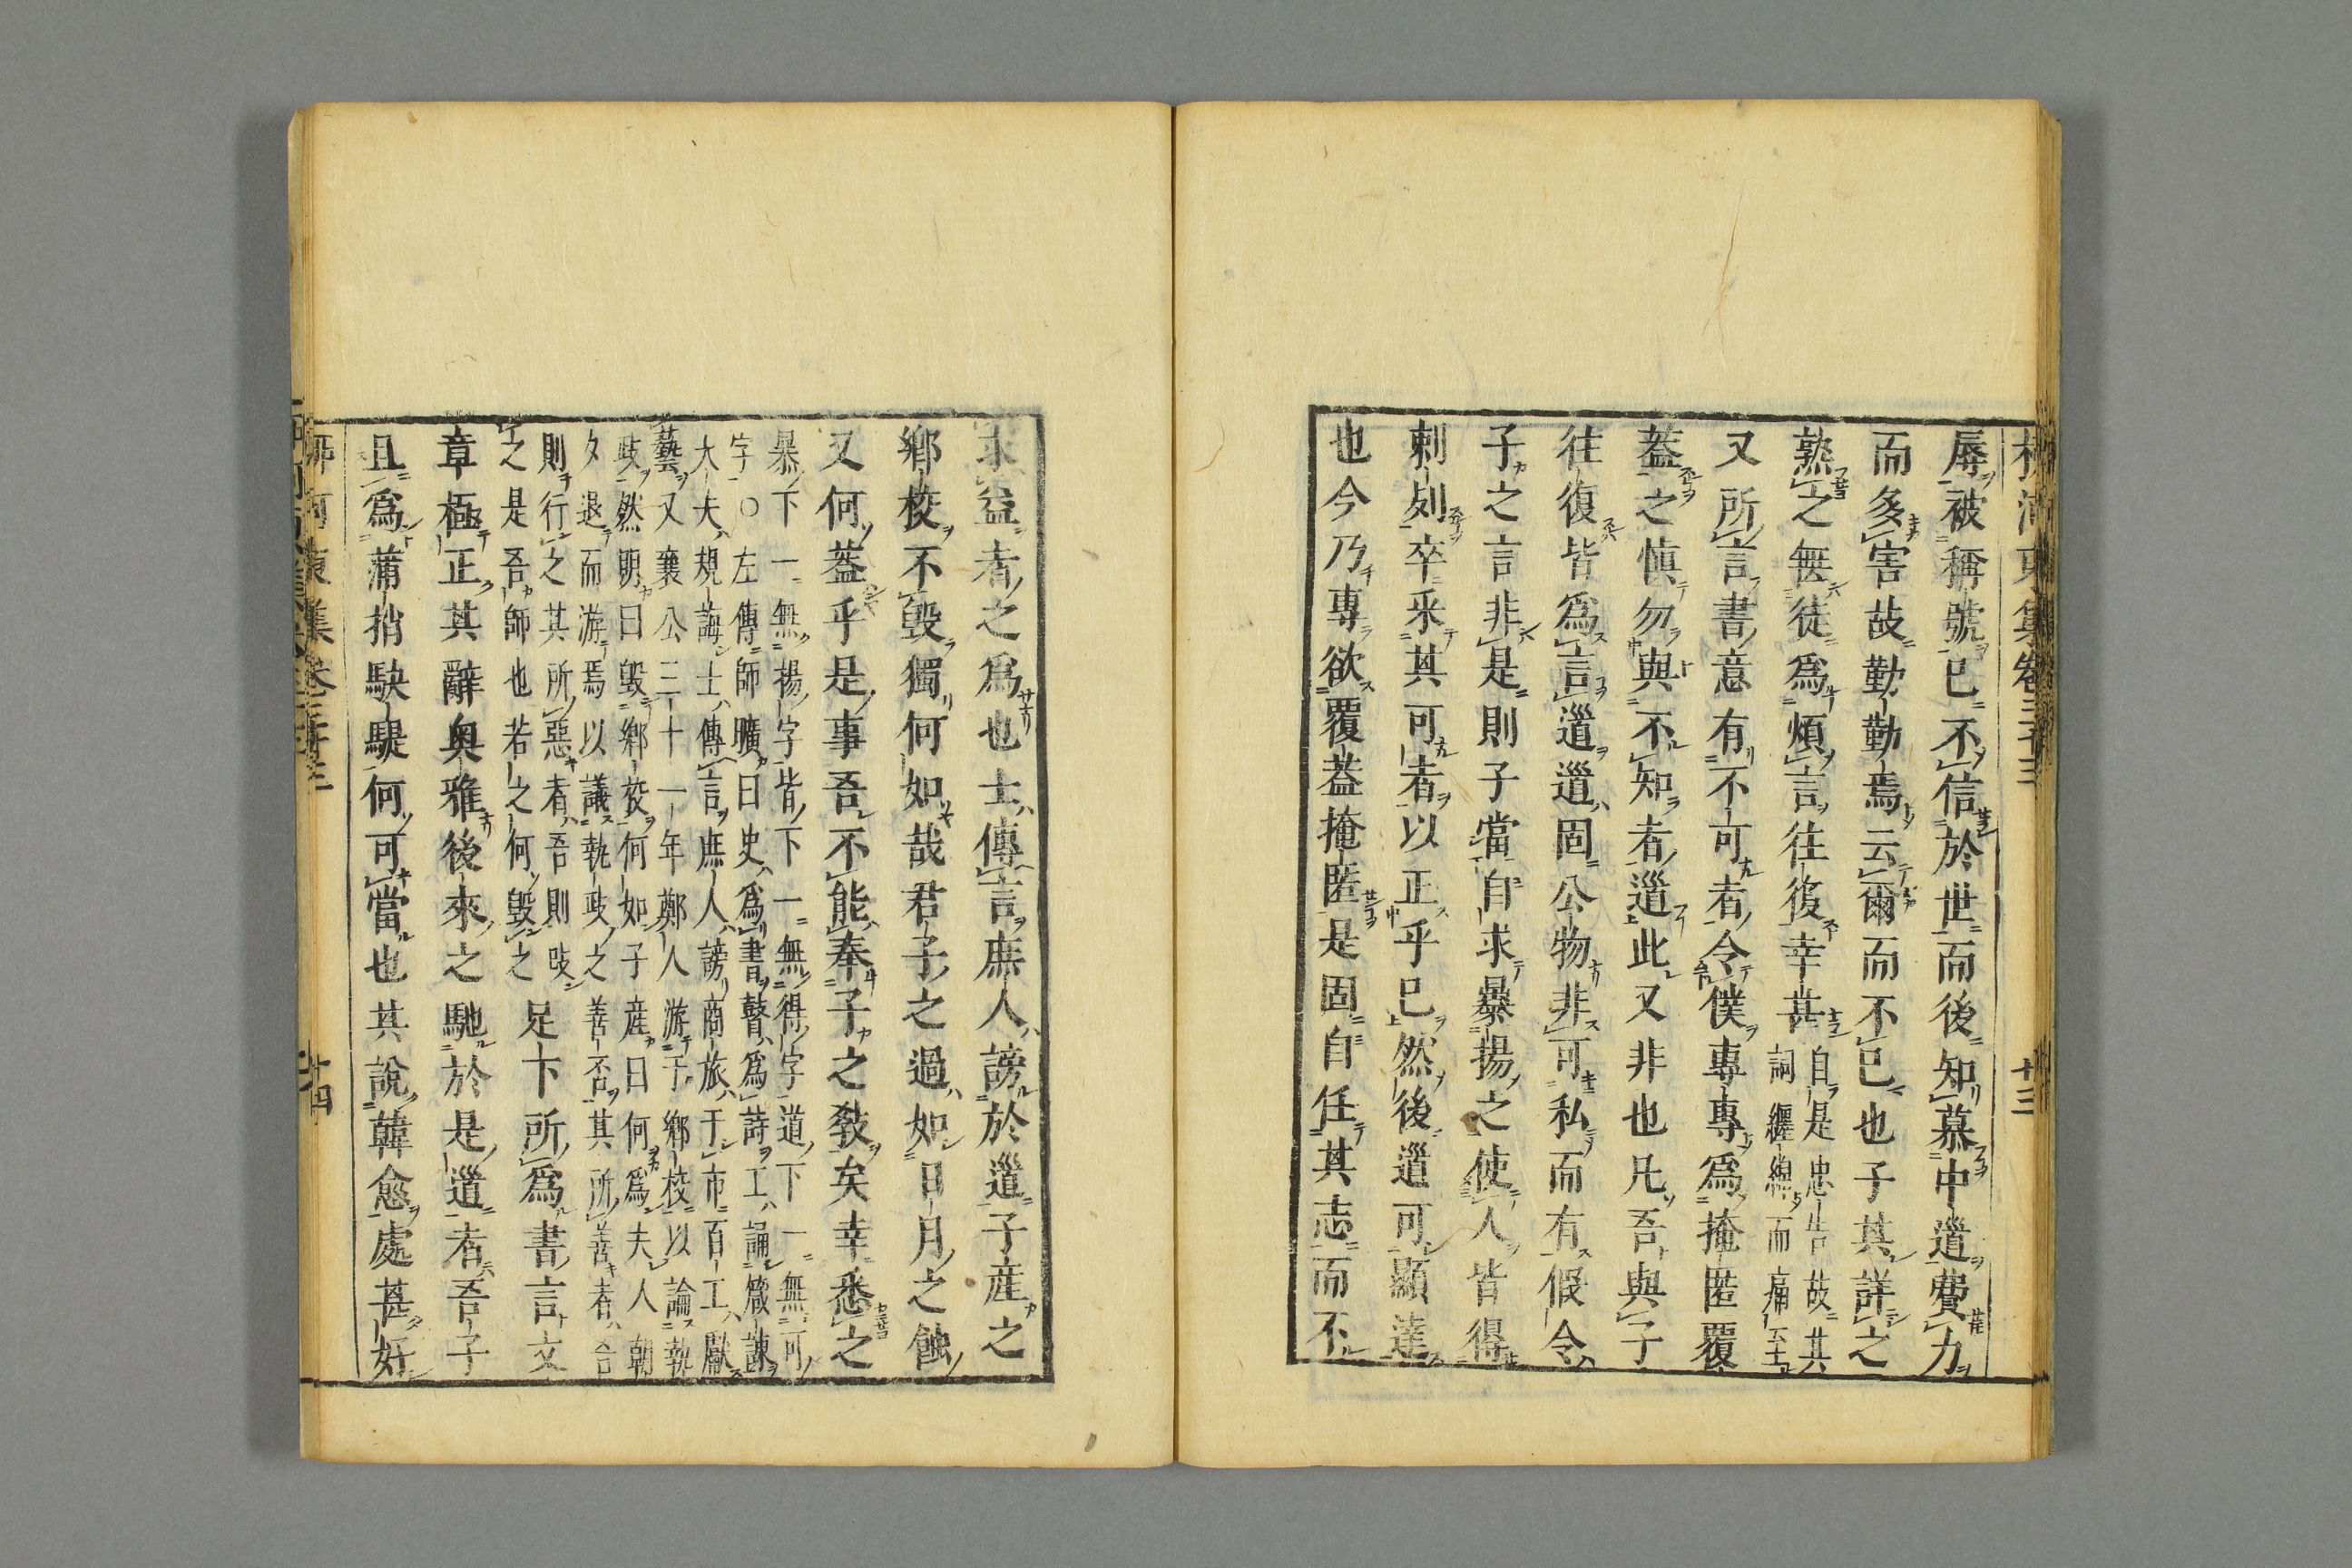 柳河東集卷三十三 十三
辱被稱號已不信於世而後知慕中道費力
而多害故勤勤焉云爾而不已也子其詳之
熟之無徒爲煩言往復幸甚自是忠告故其
詞纒綿而痛至
又所言書意有不可者令僕專專爲掩匿覆
蓋之慎勿與不知者道此又非也凡吾與子
往復皆爲言道道固公物非可私而有假令
子之言非是則子當自求暴揚之使人皆得
刺列卒采其可者以正乎已然後道可顯達
也今乃專欲覆蓋掩匿是固自任其志而不
求益者之爲也士傳言庶人謗於道子産之
鄉校不毀獨何如哉君子之過如日月之蝕
又何蓋乎是事吾不能奉子之教矣幸悉之
暴下一無揚字皆下一無得字道下一無可
字○左傳師曠曰史爲書瞽爲詩工誦箴諫
大夫規誨士傳言庶人謗商旅于市百工獻
藝又襄公三十一年鄭人游于鄉校以論執
政然明曰毀鄉校何如子産曰何爲夫人朝
夕退而游焉以議執政之善否其所善者吾
則行之其所惡者吾則改
之是吾師也若之何毀之
足下所爲書言文
章極正其辭奥雅後來之馳於是道者吾子
且爲蒲捎駃騠何可當也其說韓愈處甚好
柳河東集卷三十三 十四